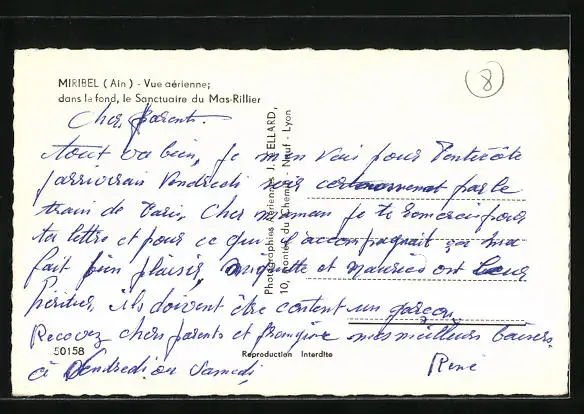 MIRIBEL (Ain) - Vue aérienne;
dans le fond, le Sanctuaire du Mas-Rillier
8
Chers parents.
tout va bien, je m'en vais pour Pentecôte
j'arriverais Vendredi soir par le
train de Paris, Cher maman je te remercie pour
ta lettre et pour ce qui l'accompagnait ça ma
fait bien plaisir, et Maurice ont leur
héritier, ils doivent être content un garçon
Recevez chers parents et mes meilleurs baisers
à Vendredi ou Samedi,
René
50158
Reproduction Interdite
Photographies Aériennes J. CELLARD,
10, Montée du Chemin - Neuf - Lyon